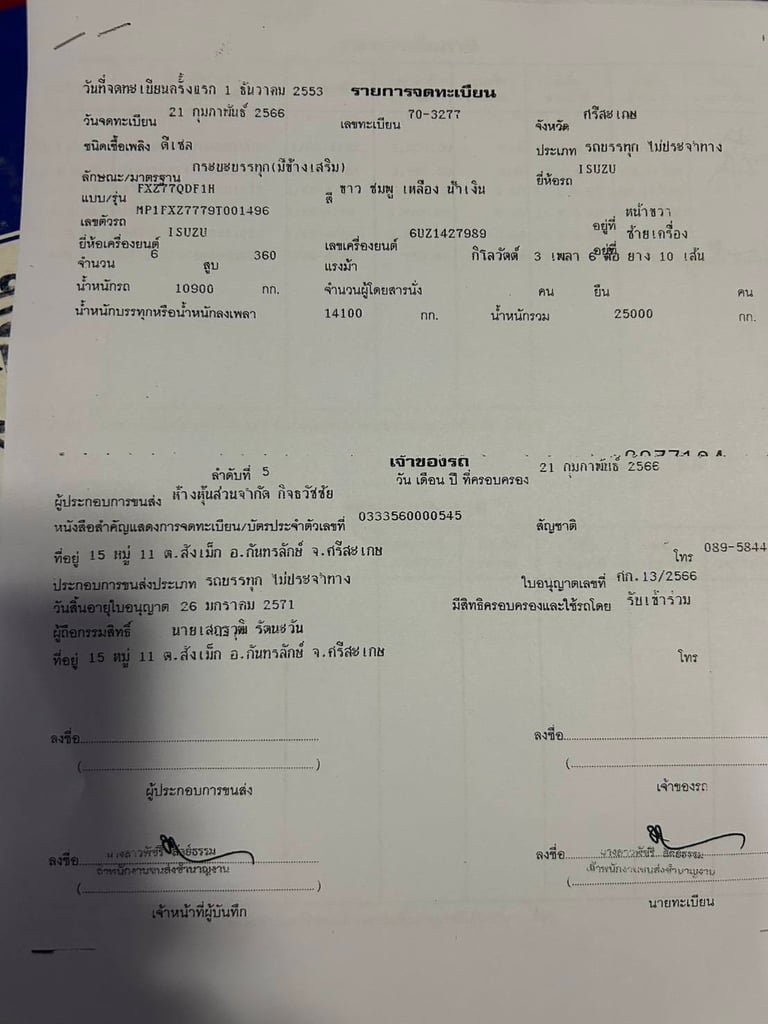 วันที่จดทะเบียนครั้งแรก 1 ธันวาคม 2553 รายการจดทะเบียน
วันจดทะเบียน 21 กุมภาพันธ์ 2566 เลขทะเบียน 70-3277 จังหวัด ศรีสะเกษ
ชนิดเชื้อเพลิง ดีเซล ประเภท รถบรรทุก ไม่ประจำทาง
ลักษณะ/มาตรฐาน กระบะบรรทุก(มีข้างเสริม) ยี่ห้อรถ ISUZU
แบบ/รุ่น FXZ77QDF1H สี ขาว ชมพู เหลือง น้ำเงิน
เลขตัวรถ MP1FXZ7779T001496 อยู่ที่ หน้าขวา
ยี่ห้อเครื่องยนต์ ISUZU เลขเครื่องยนต์ 6UZ1427989 อยู่ที่ ซ้ายเครื่อง
จำนวน 6 สูบ 360 แรงม้า กิโลวัตต์ 3 เพลา 6 ล้อ ยาง 10 เส้น
น้ำหนักรถ 10900 กก. จำนวนผู้โดยสารนั่ง คน ยืน คน
น้ำหนักบรรทุกหรือน้ำหนักลงเพลา 14100 กก. น้ำหนักรวม 25000 กก.
เจ้าของรถ
ลำดับที่ 5 วัน เดือน ปี ที่ครอบครอง 21 กุมภาพันธ์ 2566
ผู้ประกอบการขนส่ง ห้างหุ้นส่วนจำกัด กิจธวัชชัย
หนังสือสำคัญแสดงการจดทะเบียน/บัตรประจำตัวเลขที่ 0333560000545 สัญชาติ
ที่อยู่ 15 หมู่ 11 ต.สังเม็ก อ.กันทรลักษ์ จ.ศรีสะเกษ โทร 089-5844
ประกอบการขนส่งประเภท รถบรรทุก ไม่ประจำทาง ใบอนุญาตเลขที่ กก.13/2566
วันสิ้นอายุใบอนุญาต 26 มกราคม 2571 มีสิทธิครอบครองและใช้รถโดย รับเข้าร่วม
ผู้ถือกรรมสิทธิ์ นายเสฎฐวุฒิ รัตนะวัน
ที่อยู่ 15 หมู่ 11 ต.สังเม็ก อ.กันทรลักษ์ จ.ศรีสะเกษ โทร
ลงชื่อ ลงชื่อ
( ) (
ผู้ประกอบการขนส่ง เจ้าของรถ
ลงชื่อ นางสาวพัชรี สัตย์ธรรม ลงชื่อ นางสาวพัชรี สัตย์ธรรม
เจ้าพนักงานขนส่งชำนาญงาน เจ้าพนักงานขนส่งชำนาญงาน
( ) (
เจ้าหน้าที่ผู้บันทึก นายทะเบียน